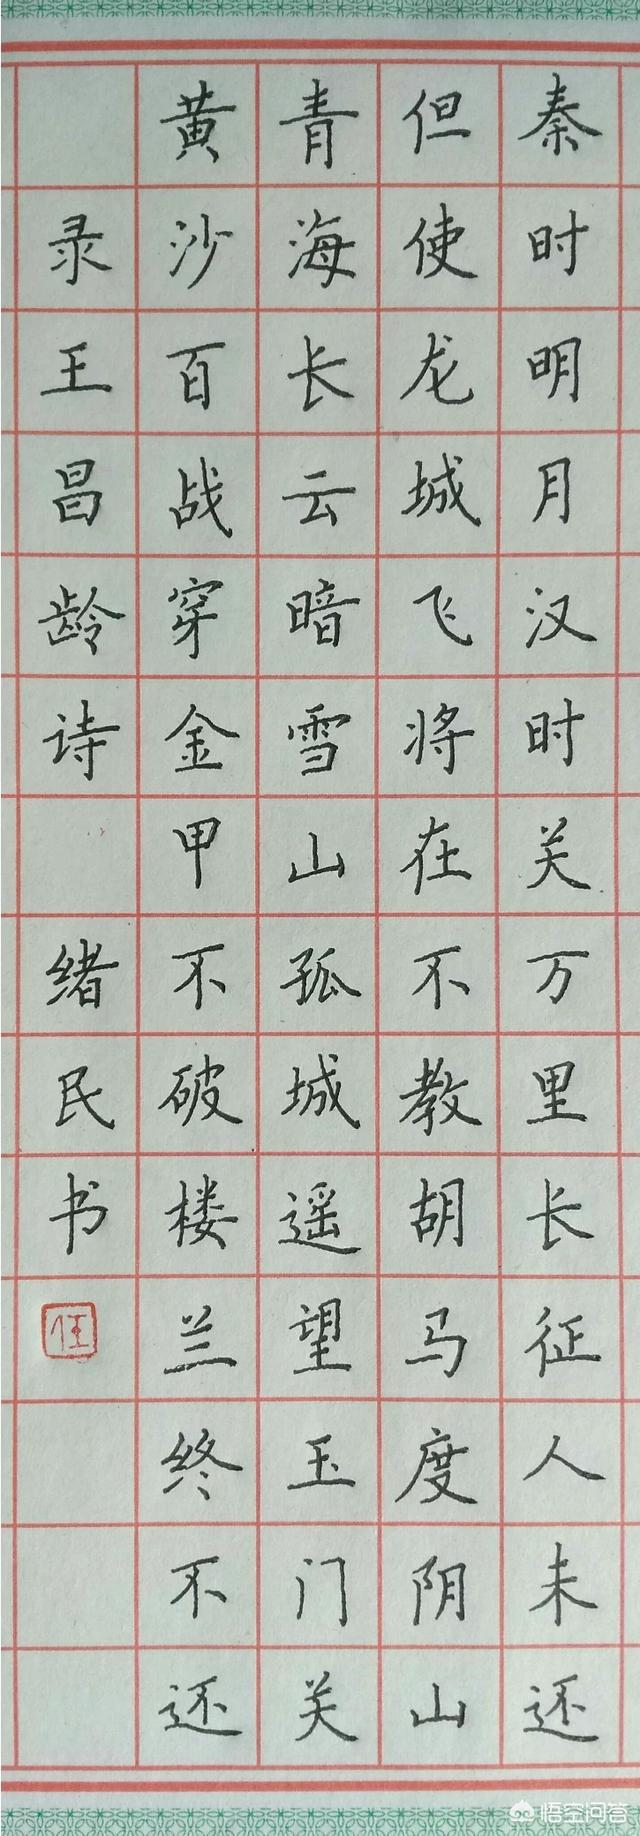 秦时明月汉时关万里长征人未还
但使龙城飞将在不教胡马度阴山
青海长云暗雪山孤城遥望玉门关
黄沙百战穿金甲不破楼兰终不还
录王昌龄诗 绪民书
任
悟空问答